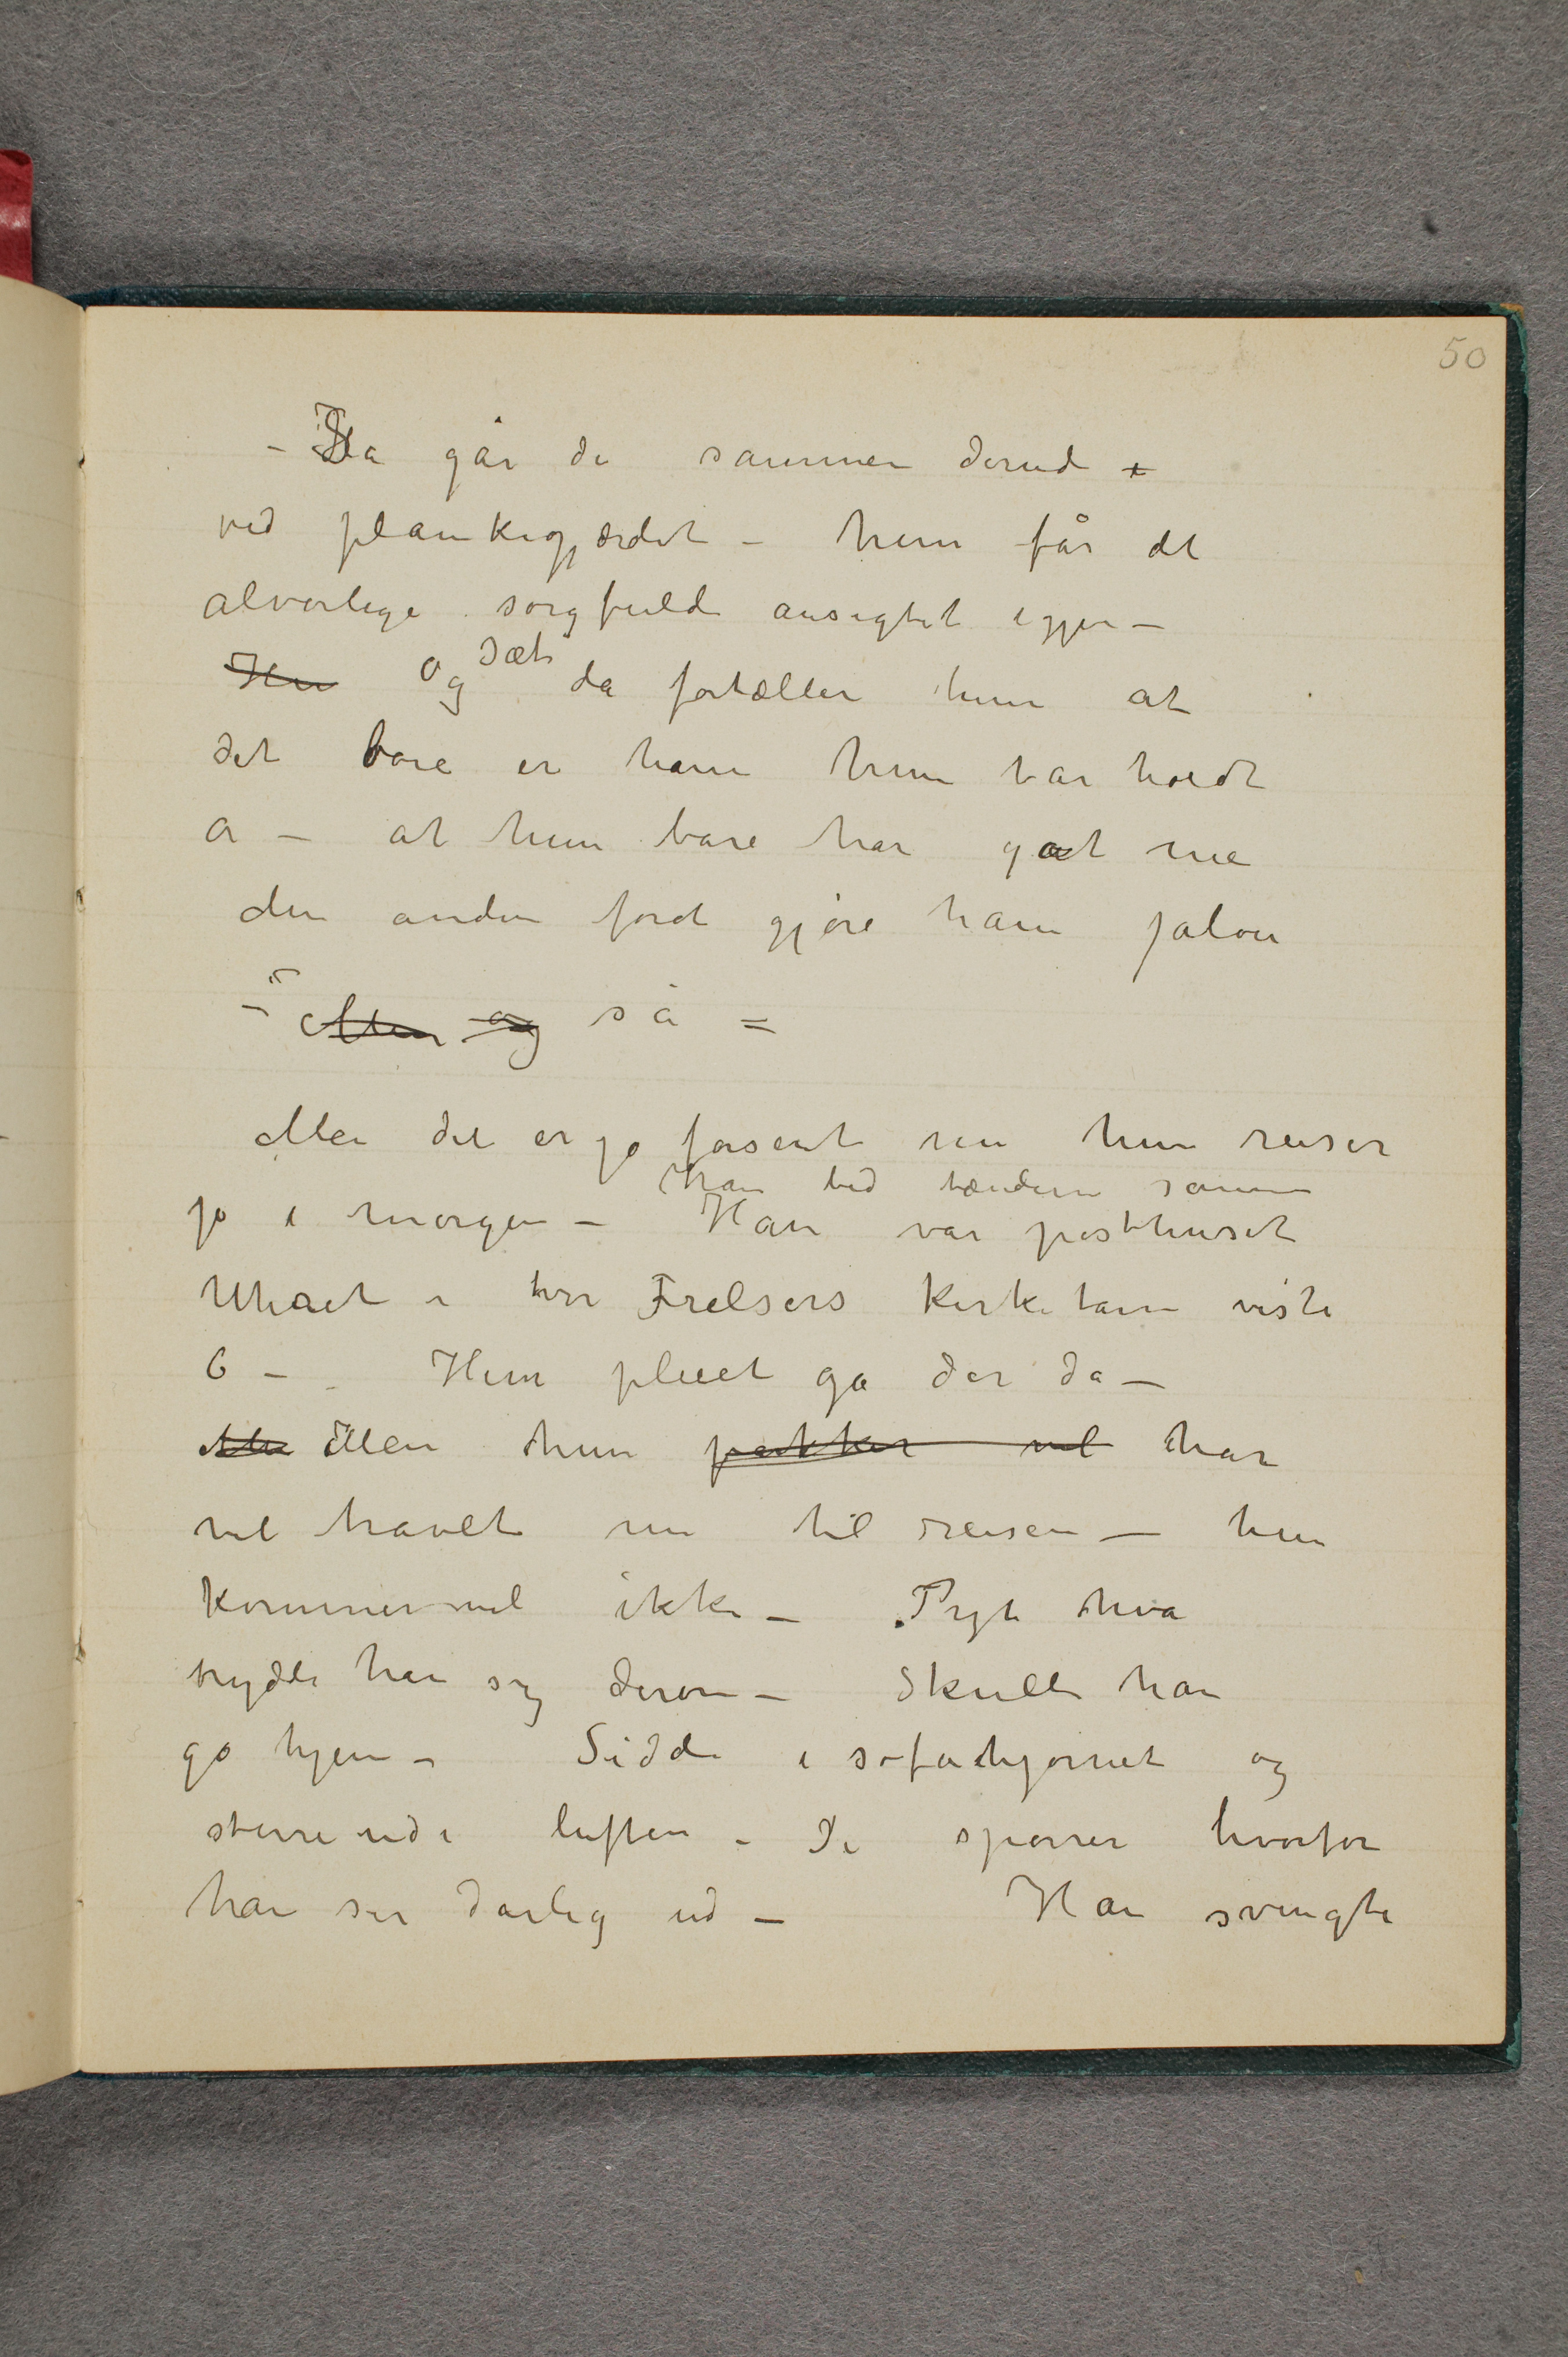 50
– Da går de sammen derude
ved plankegjærdet – hun får det
alvorlige sorgfulde ansigtet igjen –
Hu Og da fortæller hun at
det bare er ham hun har holdt
a – at hun bare har gåt me
den anden forat gjøre ham jalou
– Men og så =
Men det er jo forsent nu hun reiser
han bed tænderne sammen
jo i morgen – Han var posthuset
Uhret i vor Frelsers Kirketarn viste
6 – Hun pleiet gå der da –
Men Men hun pakker vel har
vel travelt nu til reisen – hun
kommer vel ikke – Pyt hva
brydde han sig derom – Skulle han
gå hjem – Sidde i sofahjørnet og
stirre ud i luften – De spørrer hvorfor
han ser dårlig ud – Han svingte